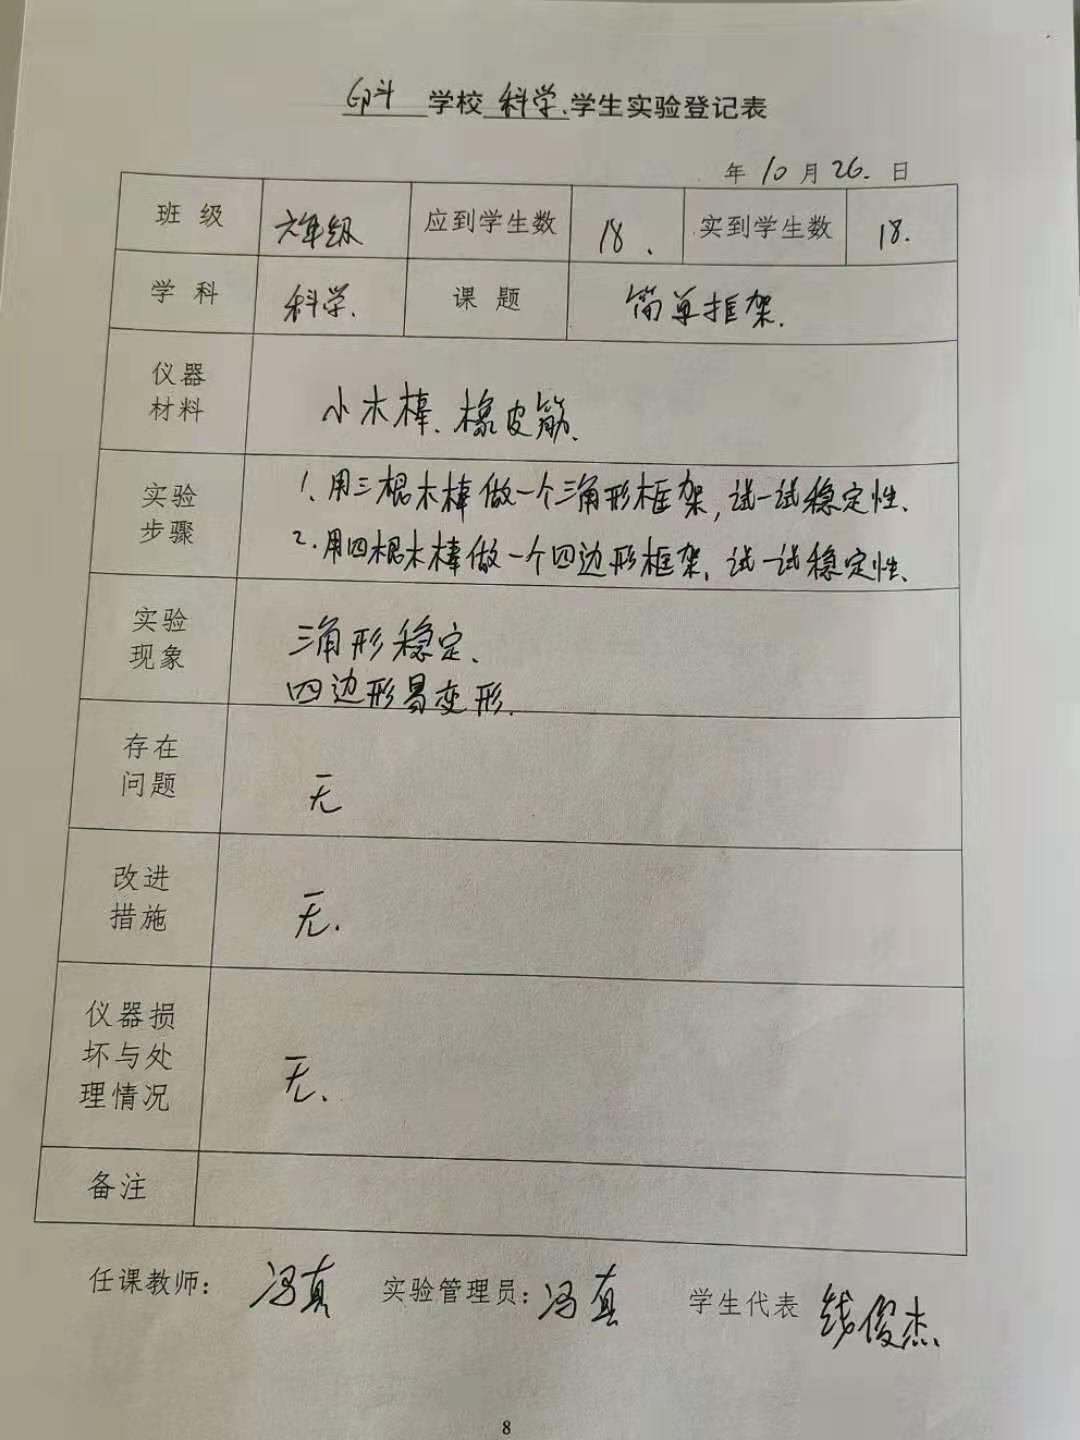 卬斗 学校 科学 学生实验登记表
年 10 月 26. 日
班 级 六年级 应到学生数 18. 实到学生数 18.
学 科 科学. 课 题 简单框架.
仪器
材料
小木棒、橡皮筋、
实验
步骤
1、用三棍木棒做一个三角形框架,试一试稳定性、
2、用四棍木棒做一个四边形框架、试一试稳定性、
实验
现象
三角形稳定、
四边形易变形.
存在
问题
无
改进
措施
无.
仪器损
坏与处
理情况
无.
备注
任课教师: 冯真 实验管理员: 冯真 学生代表 钱俊杰
8